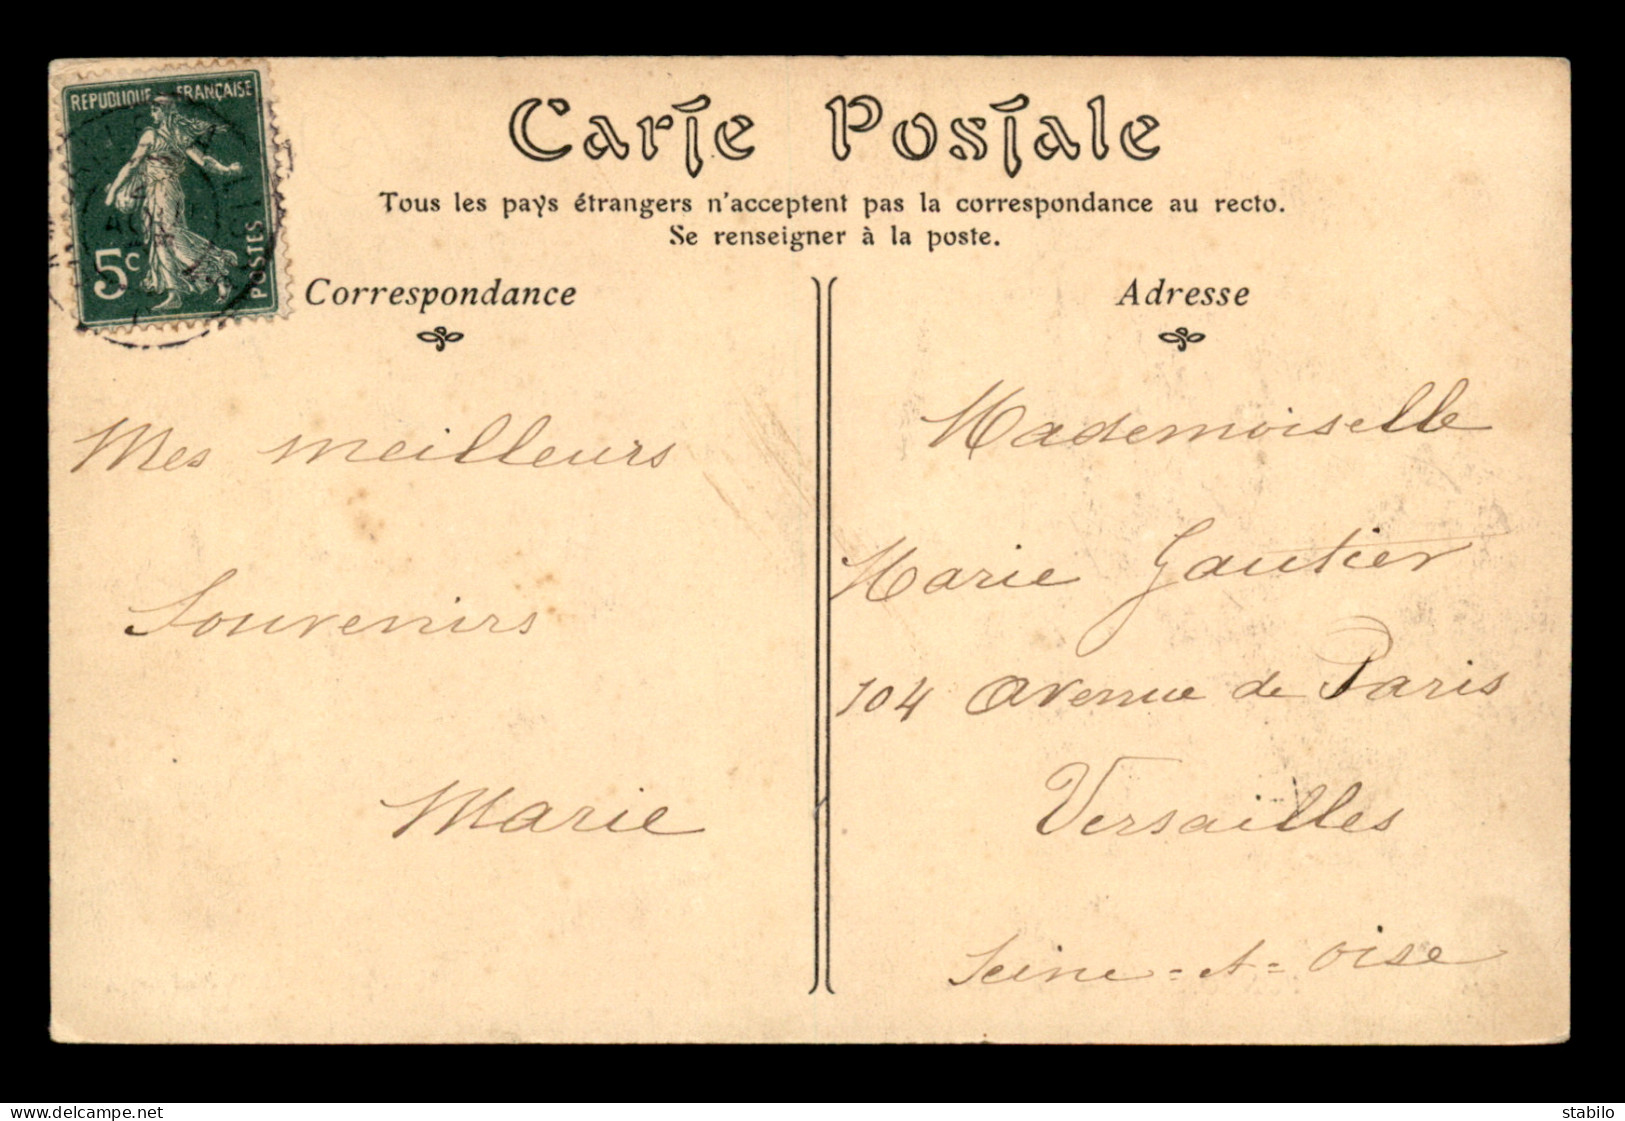 REPUBLIQUE FRANÇAISE
5c
POSTES
AOU
Carte Postale
Tous les pays étrangers n'acceptent pas la correspondance au recto.
Se renseigner à la poste.
Correspondance
Mes meilleurs
Souvenirs
Marie
Adresse
Mademoiselle
Marie Gautier
104 avenue de Paris
Versailles
Seine-et-Oise
www.delcampe.net
stabilo